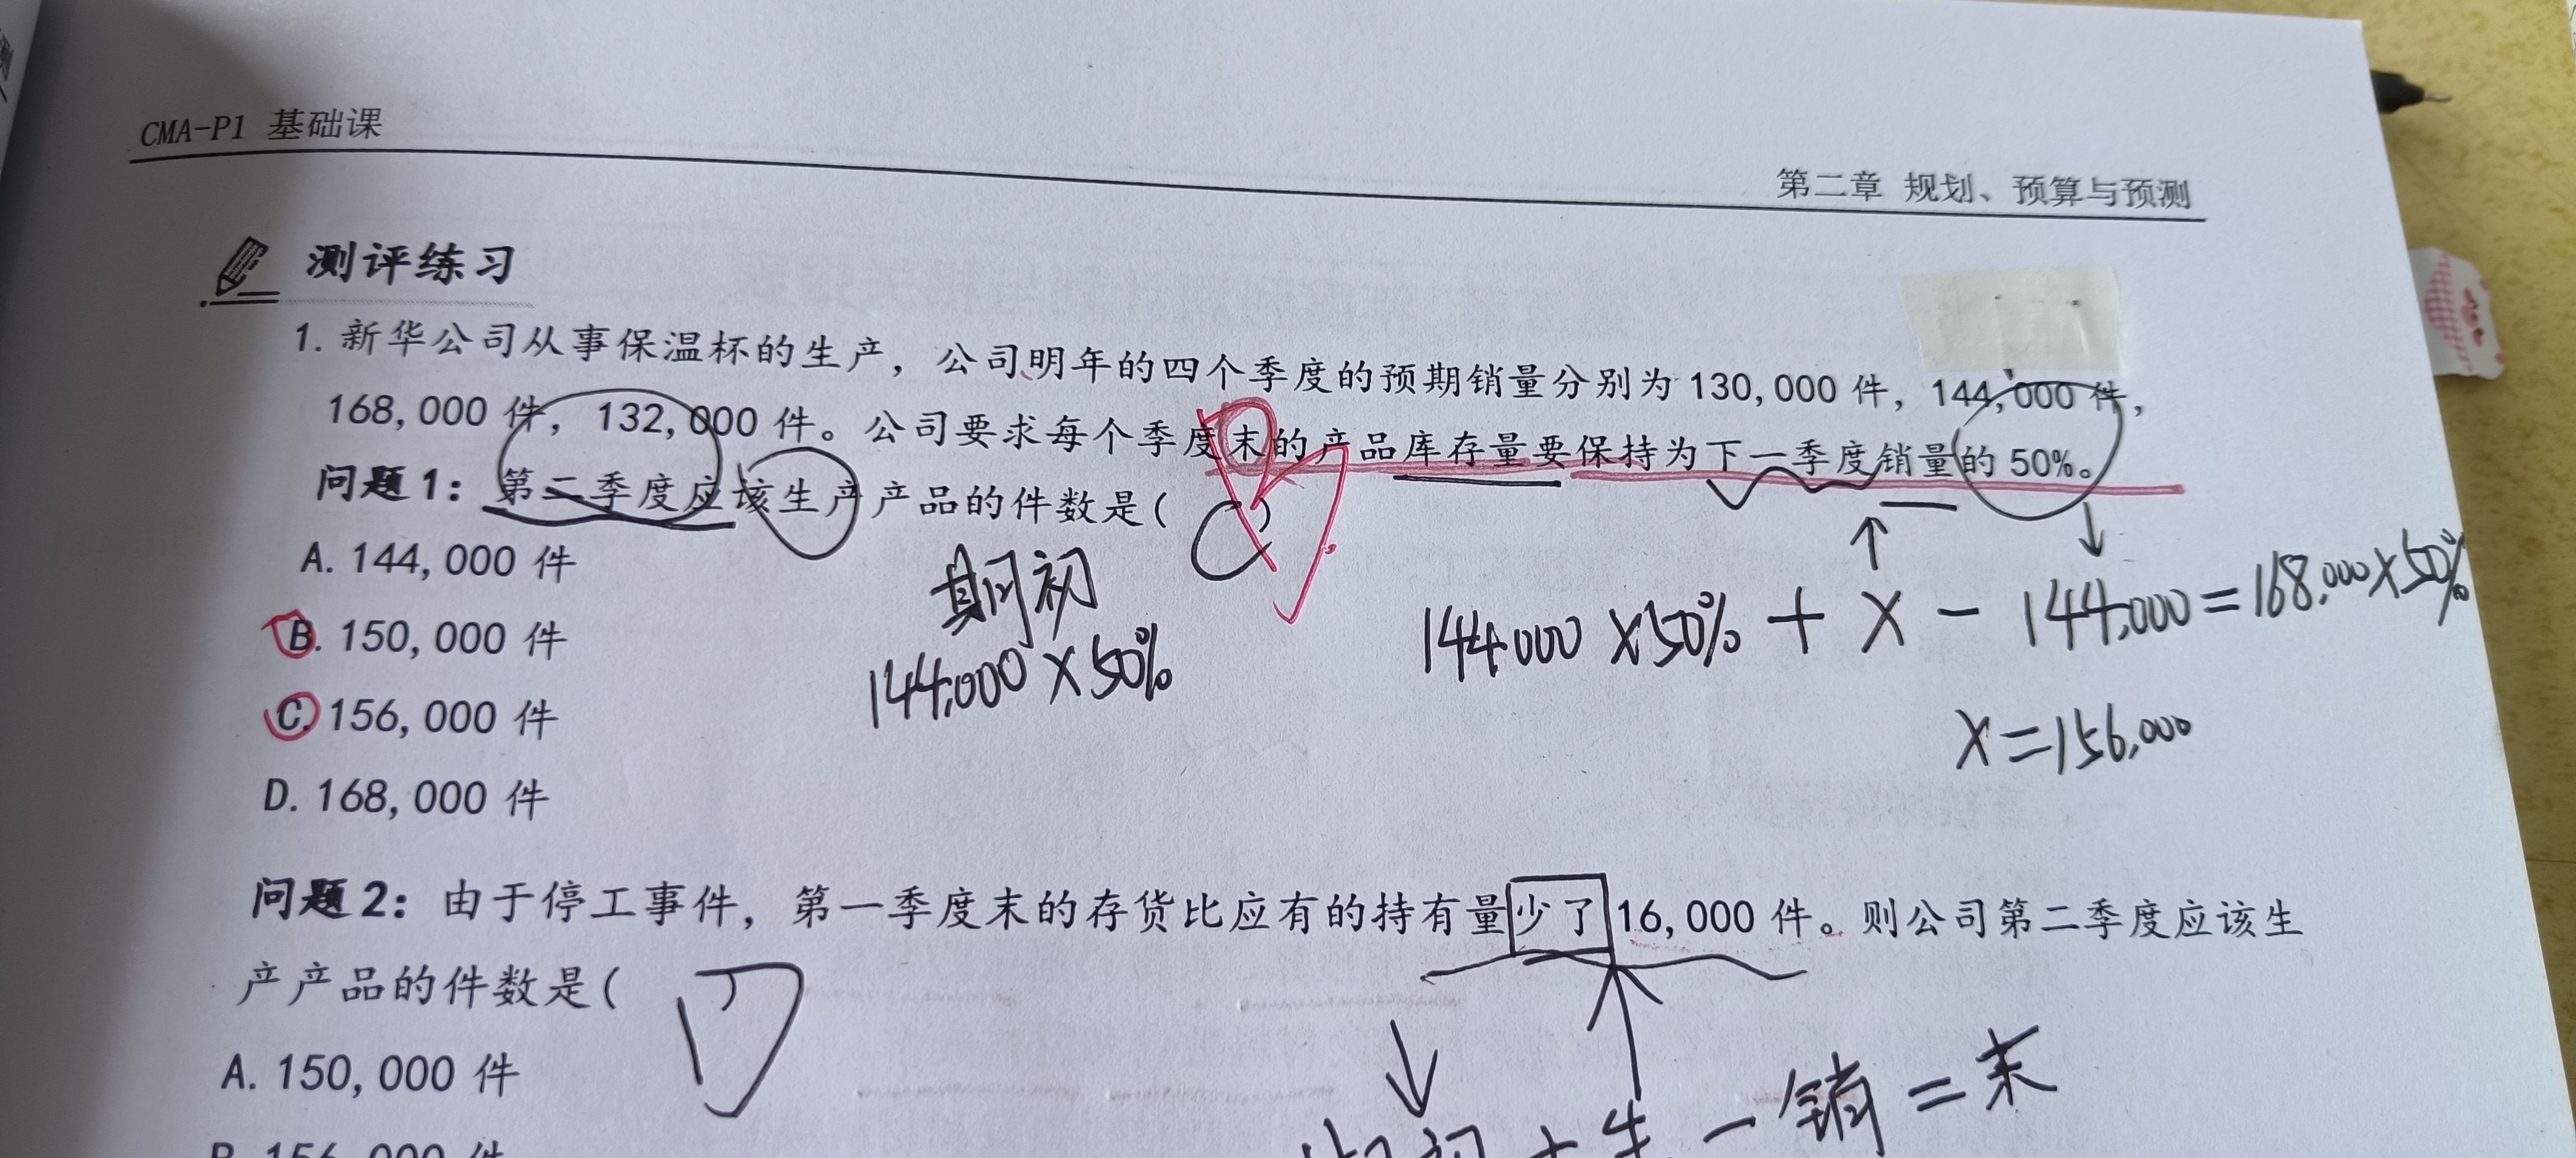 CMA-P1 基础课
第二章 规划、预算与预测
测评练习
1. 新华公司从事保温杯的生产，公司明年的四个季度的预期销量分别为 130,000 件，144,000 件，
168,000 件，132,000 件。公司要求每个季度末的产品库存量要保持为下一季度销量的 50%。
问题1：第二季度应该生产产品的件数是( C )
A. 144,000 件
B. 150,000 件
C. 156,000 件
D. 168,000 件
期初
144,000×50%
144,000×50%+X-144,000=168,000×50%
X=156,000
问题2：由于停工事件，第一季度末的存货比应有的持有量少了 16,000 件。则公司第二季度应该生
产产品的件数是( D
A. 150,000 件
B. 156,000 件
初+生-销=末